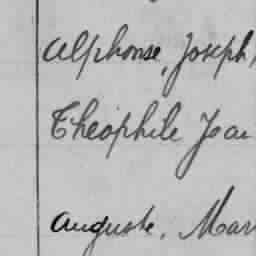 Alphonse, Joseph,
Théophile Jea
Auguste, Mar